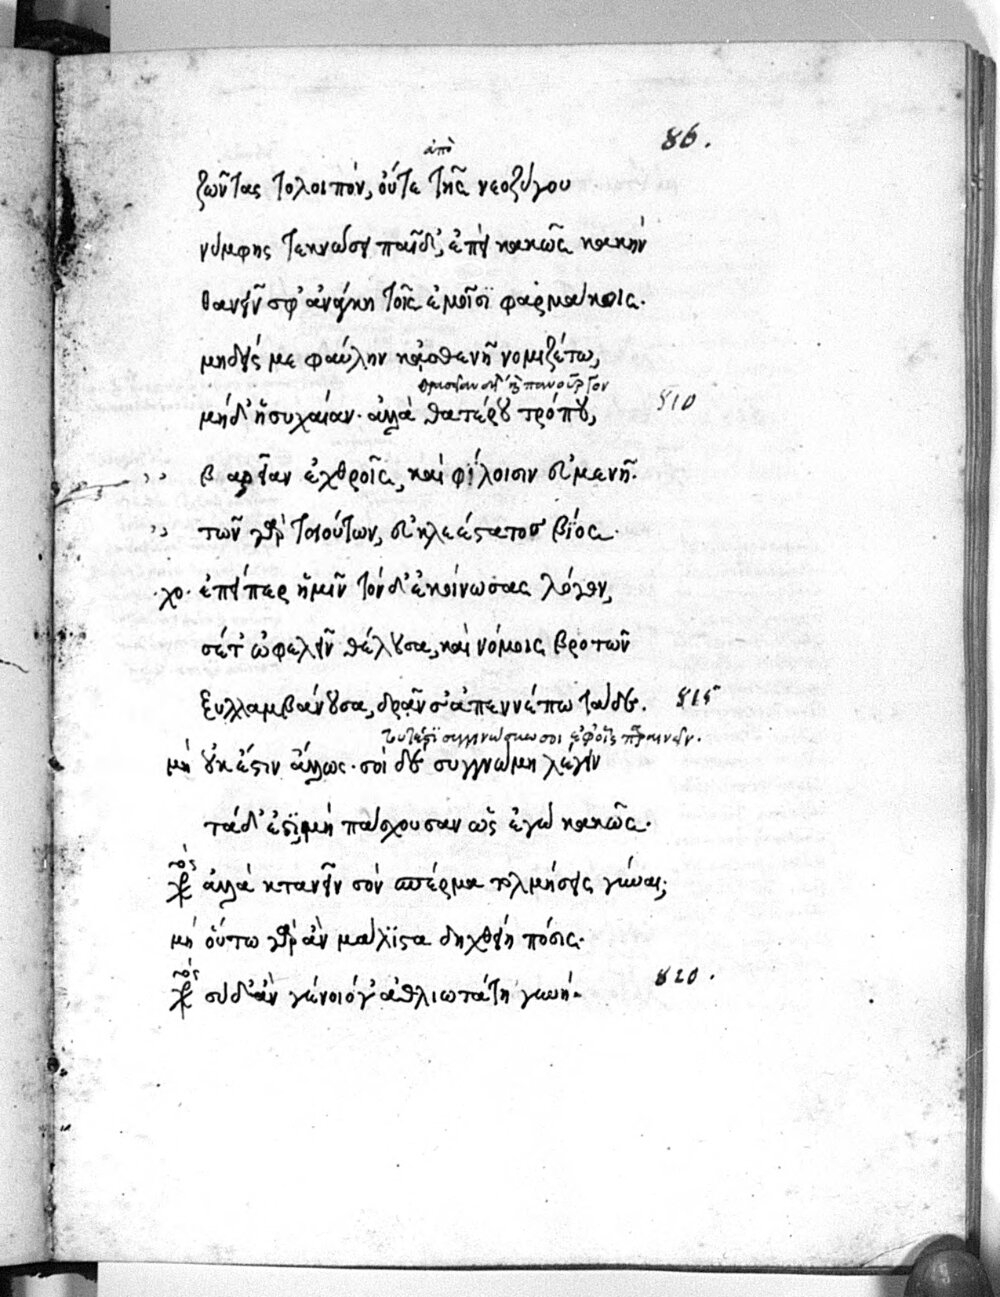 86.
ἀπὸ
ζῶντας τολοιπόν, οὔτε τῆς νεοζύγου
νύμφης τεκνώσει παῖδ', ἐπεὶ κακῶς κακὴν
θανεῖν σφ' ἀνάγκη τοῖς ἐμοῖσϊ φαρμάκοις.
μηδείς με φαύλην κἀσθενῆ νομιζέτω,
810
μήδ' ἡσυχαίαν· ἀλλὰ θατέρου τρόπου,
βαρεῖαν ἐχθροῖς, καὶ φίλοισιν εὐμενῆ.
τῶν γὰρ τοιούτων, εὐκλεέστατοσ βίος
χο. ἐπείπερ ἡμῖν τόνδ' ἐκοίνωσας λόγον,
σέτ' ὠφελεῖν θέλουσα, καὶ νόμοις βροτῶν
ξυλλαμβάνουσα, δρᾶν σ' ἀπεννέπω τάδε. 815
συγγινώσκω σοι
μή οὐκ ἔστιν ἄλλως· σοὶ δὲ συγγνώμη λέγειν
τάδ' ἐστϊ μὴ πάσχουσαν ὡς ἐγὼ κακῶς.
χος ἀλλὰ κτανεῖν σὸν σπέρμα τολμήσεις γύναι;
μή οὕτω γὰρ ἂν μάλϊστα δηχθείη πόσις.
820.
χος συδ' ἂν γένοιό γ' ἀθλιωτάτη γυνή.